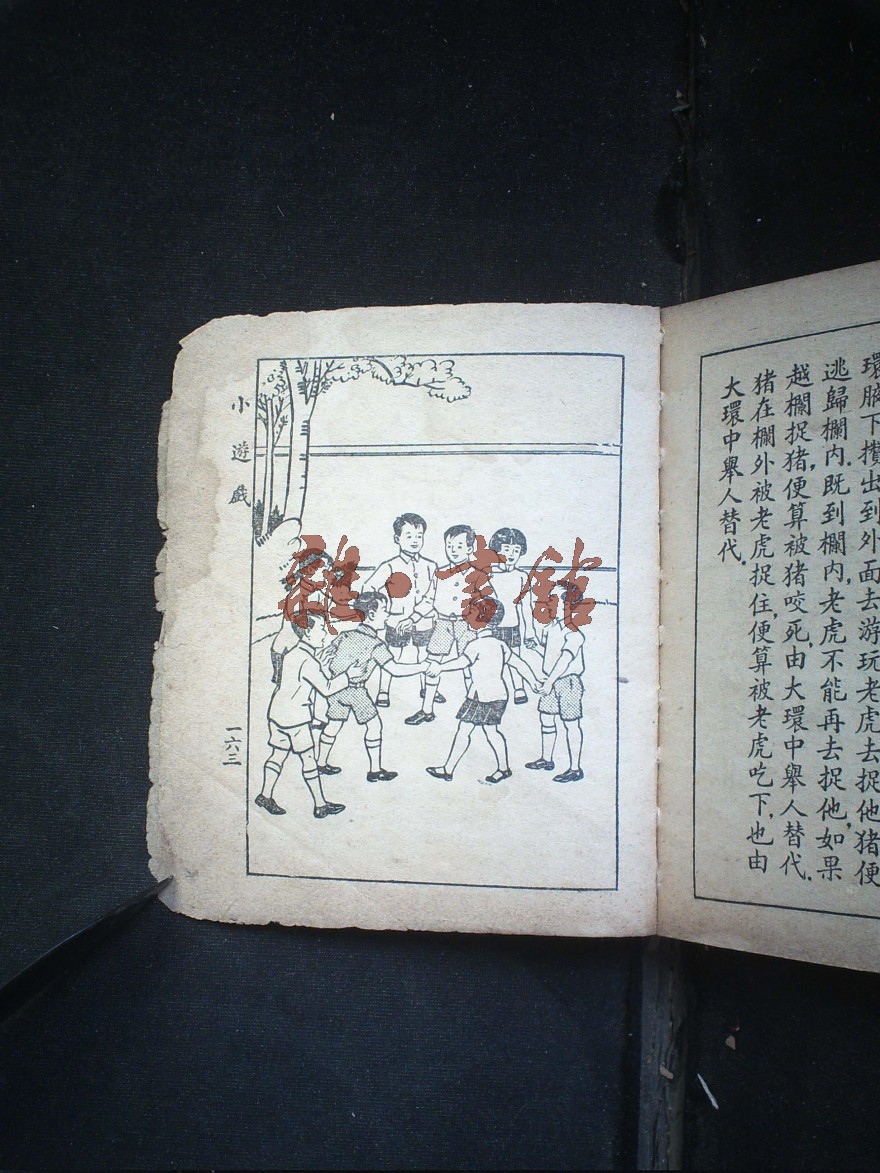 環腋下攢出到外面去游玩老虎去捉他猪便
逃歸欄内.既到欄内,老虎不能再去捉他,如果
越欄捉猪,便算被猪咬死,由大環中舉人替代.
猪在欄外被老虎捉住,便算被老虎吃下,也由
大環中舉人替代.
小遊戲
一六三
雜·書館